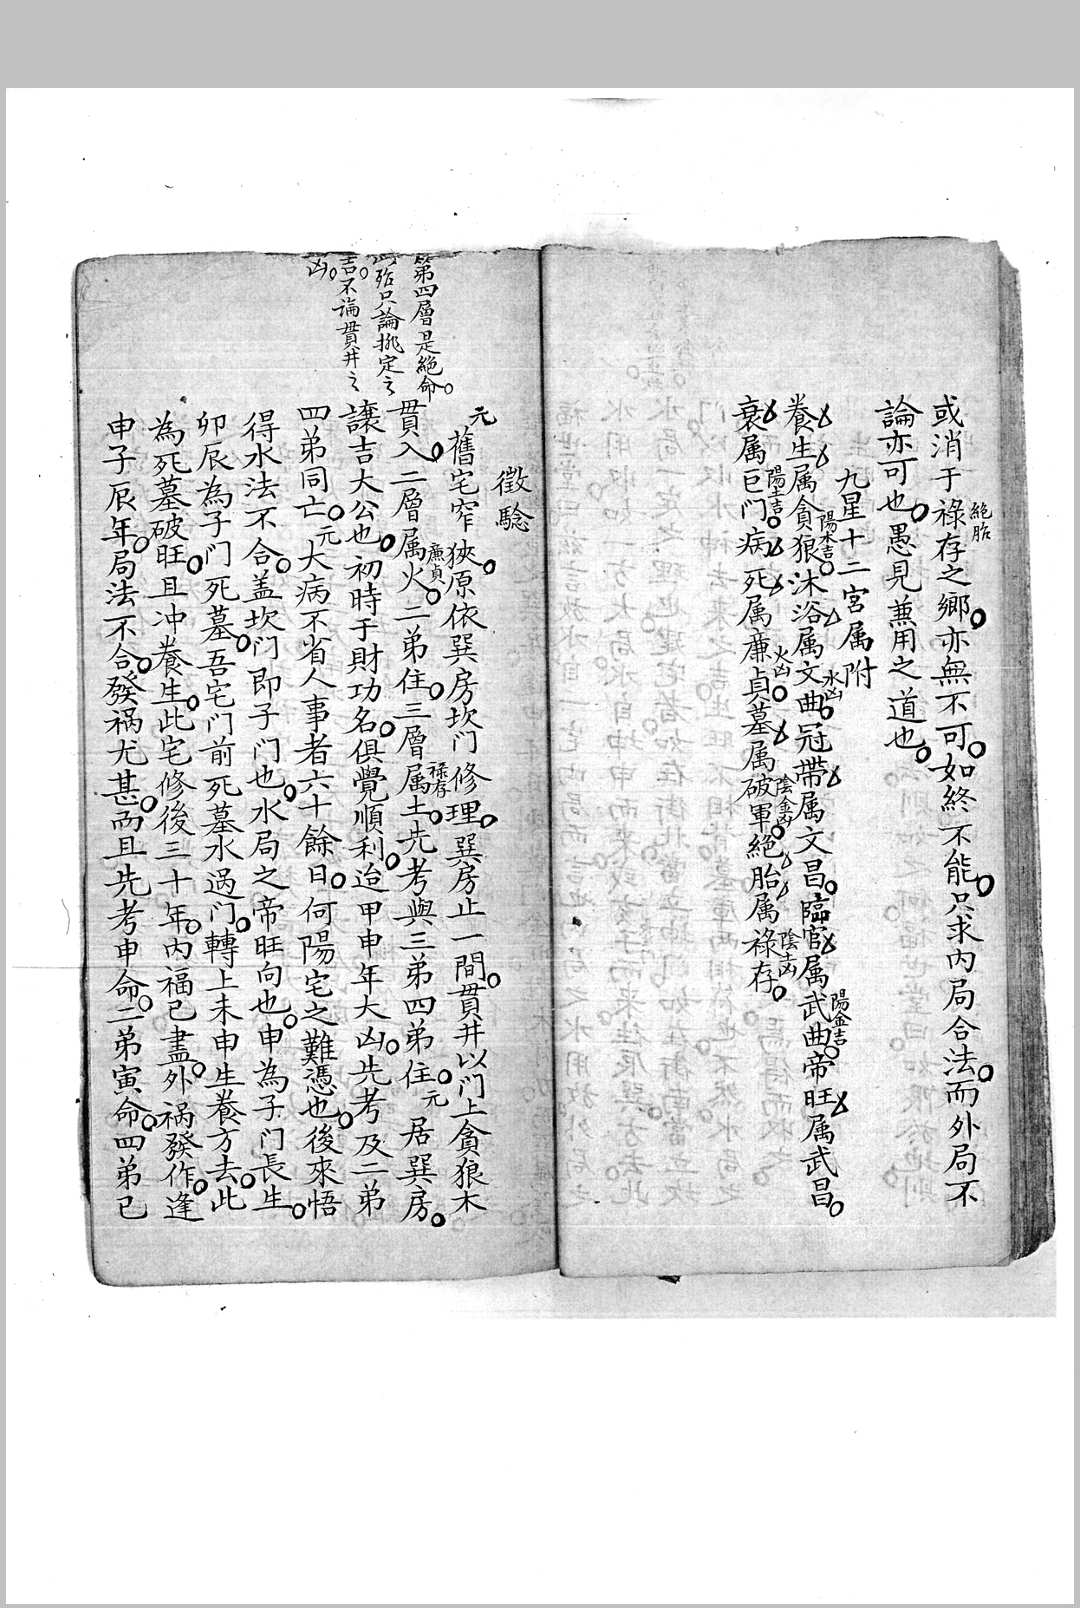 或消于祿存之鄉亦無不可如終不能只求內局合法而外局不
絕胎
論亦可也愚見兼用之道也
九星十二宮属附
養生属貪狼沐浴属文曲冠帶属文昌臨官属武曲帝旺属武昌
陽木吉
水凶
陽金吉
衰属巨门病死属廉貞墓属破軍絕胎属祿存
陽土吉
火凶
陰金凶
陰土凶
徵騐
元舊宅窄狹原依巽房坎门修理巽房止一間貫井以门上貪狼木
貫入二層属火二弟住三層属土先考與三弟四弟住元居巽房
廉貞
祿存
譲吉大公也初時于財功名俱覺順利迨甲申年大凶先考及二弟
四弟同亡元大病不省人事者六十餘日何陽宅之難憑也後來悟
得水法不合盖坎门即子门也水局之帝旺向也申為子门長生
卯辰為子门死墓吾宅门前死墓水過门轉上未申生養方去此
為死墓破旺且冲養生此宅修後三十年内福已盡外祸發作逢
申子辰年局法不合發祸尤甚而且先考申命二弟寅命四弟巳
第四層是絕命
殆只論挑定之
吉不論貫井之
凶